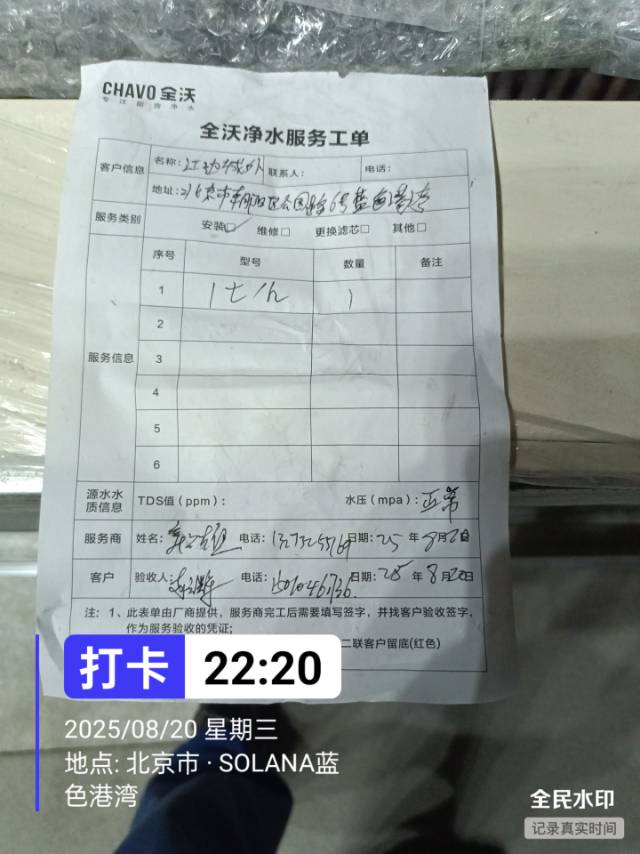 CHAVO 全沃
专注厨房净水
全沃净水服务工单
客户信息 名称: 联系人: 电话:
地址: 北京市朝阳区公园路6号蓝色港湾
服务类别 安装☑ 维修□ 更换滤芯□ 其他□
服务信息 序号 型号 数量 备注
1 1
2
3
4
5
6
源水水质信息 TDS值(ppm): 水压(mpa): 正常
服务商 姓名: 电话: 日期: 25 年 8月20日
客户 验收人: 电话: 日期: 25 年 8月20日
注: 1、此表单由厂商提供,服务商完工后需要填写签字,并找客户验收签字,
作为服务验收的凭证;
二联客户留底(红色)
打卡 22:20
2025/08/20 星期三
地点: 北京市 · SOLANA蓝
色港湾
全民水印
记录真实时间